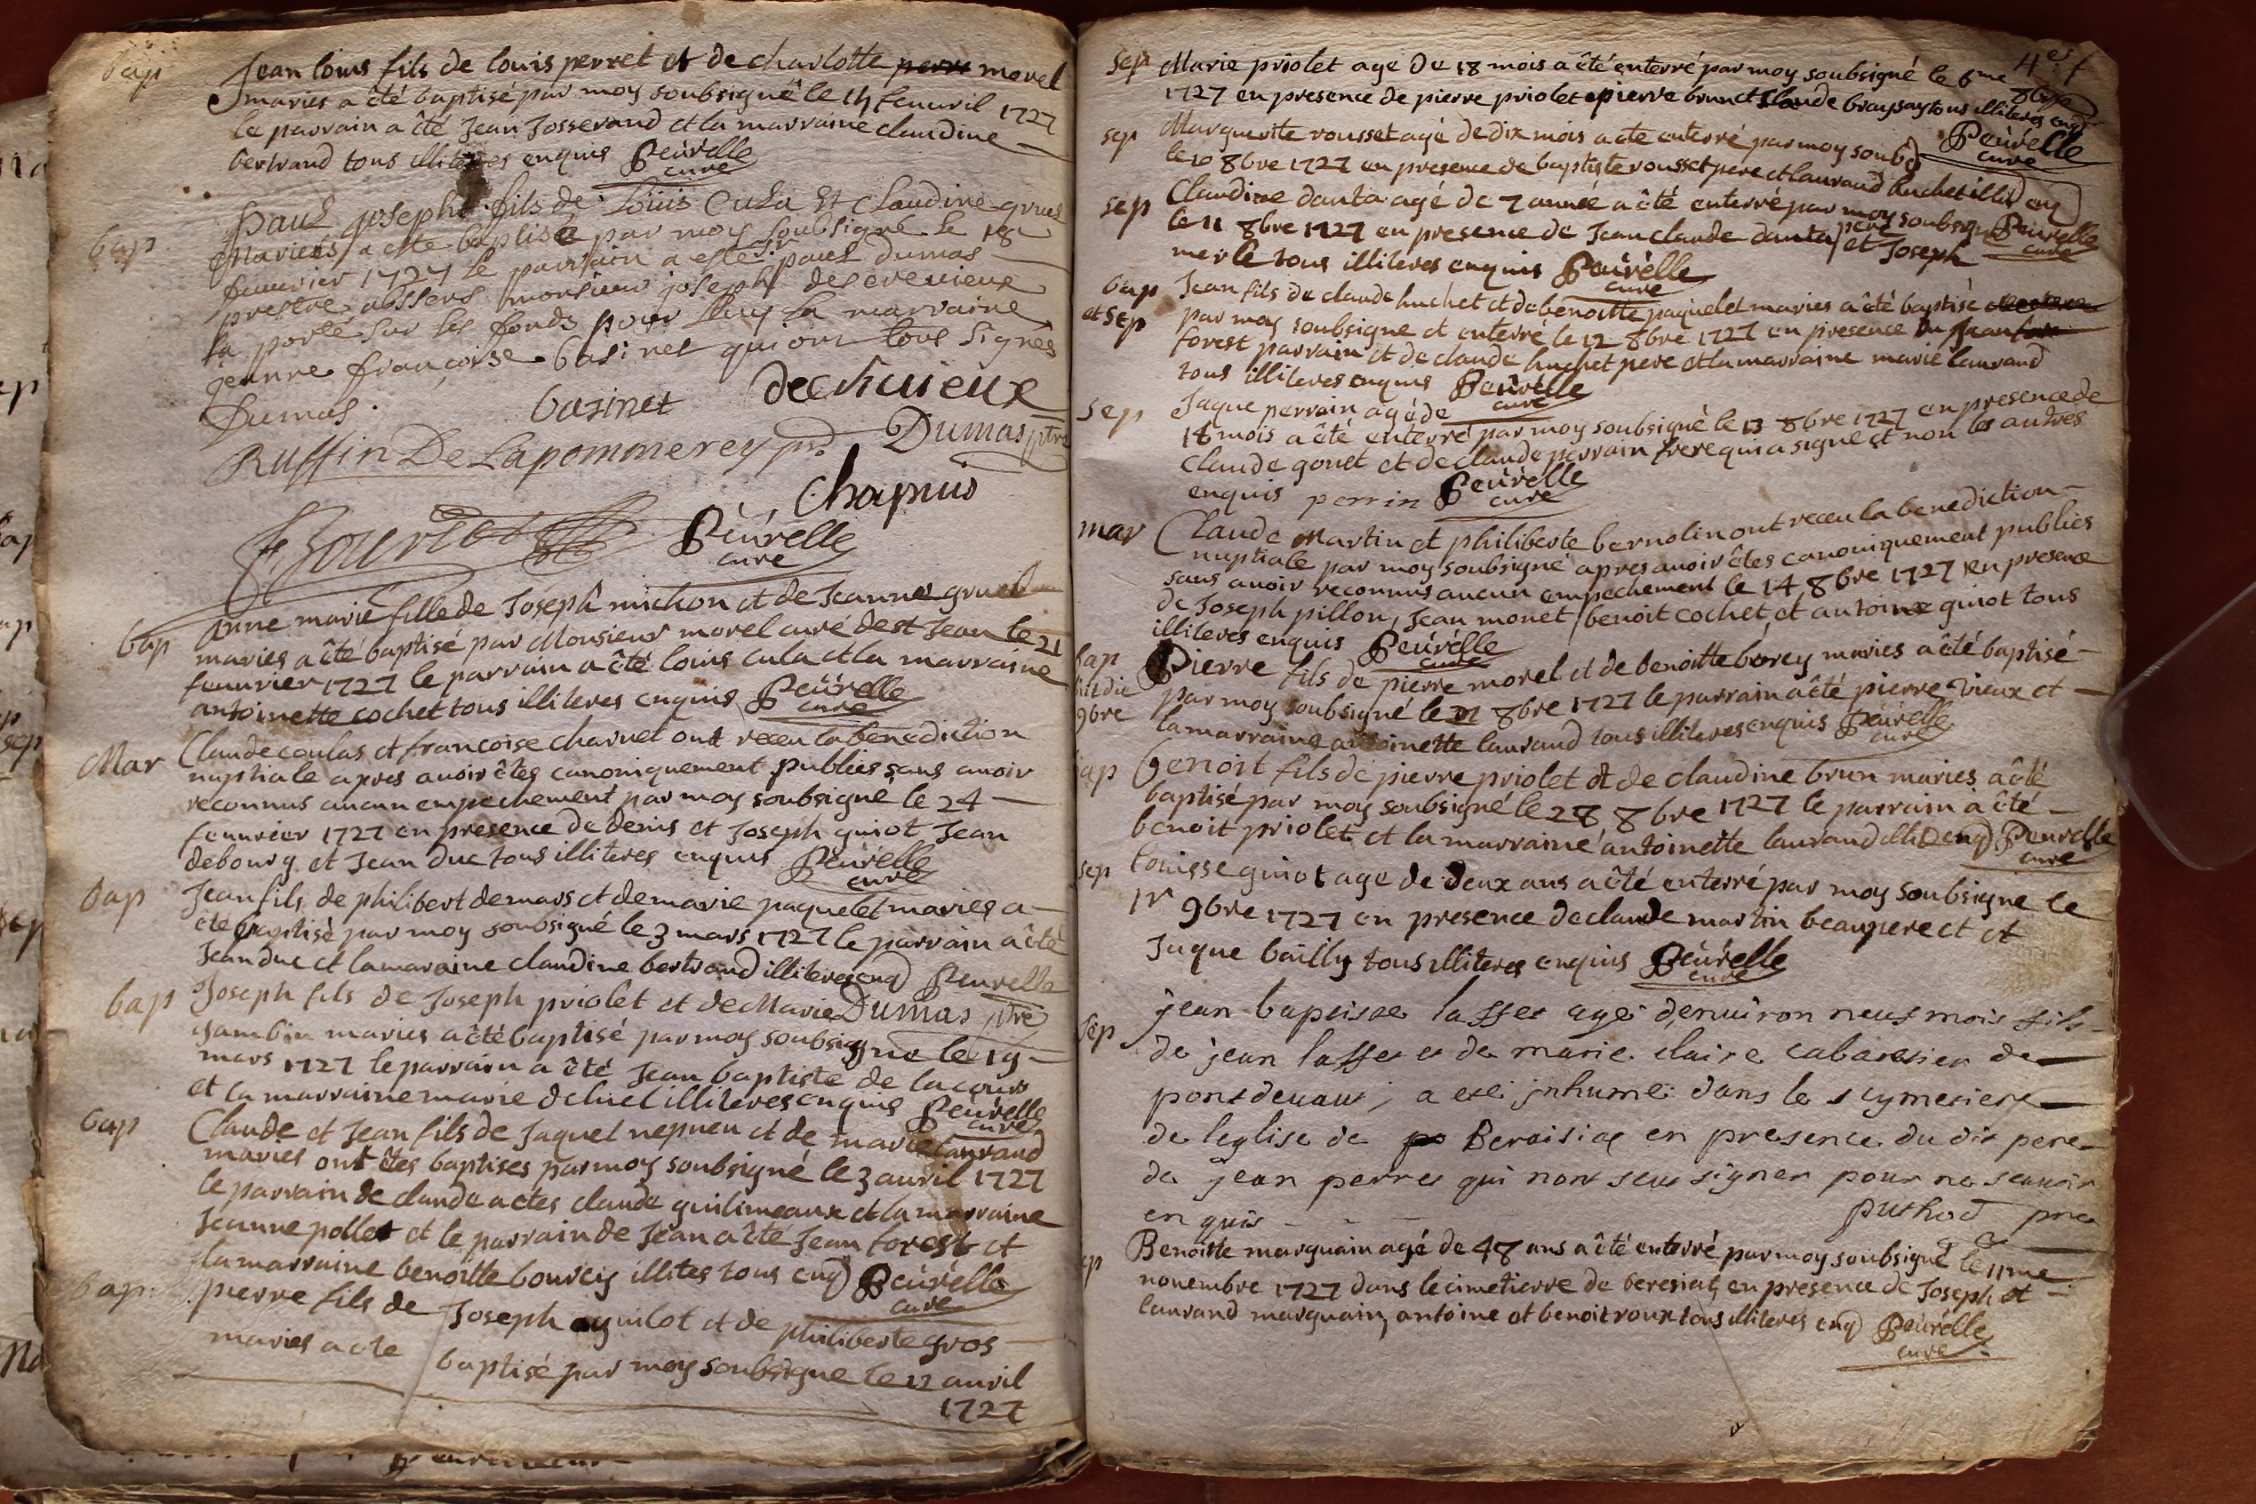 bap
Jean louis fils de louis perret et de charlotte perre morel
maries a êté baptisé par moy soubsigné le 14 feuuril 1727
le parrain a êté Jean Josserand et la marraine claudine
bertrand tous illiteres enquis Peûrelle
cure
bap
paul joseph fils de Loüis Cula Et Claudine gruel
Mariéés a esté baptisé par moy soubsigné le 18e
feuurier 1727 le parrain a esté sr paul dumas
prestre absens monsieur joseph
la porté sur les fonds pour Luy La marraine
jeanne françoise basinet qui ont tous signés
Dumas. basinet
Ruffin De Lapommerey pr. Dumas ptre
Chapuis
Peûrelle
cure
bap
anne marie fille de Joseph michon et de Jeanne gruel
maries a êté baptisé par Monsieur morel curé de st Jean le 21
feuurier 1727 le parrain a êté louis cula et la marraine
antoinette cochet tous illiteres enquis Peûrelle
cure
Mar
Claude coulas et francoise charuet ont receu la benediction
nuptiale apres auoir êtes canoniquement publies sans auoir
reconnus aucun empechement par moy soubsigné le 24
feuurier 1727 en presence de denis et Joseph guiot Jean
debourg et Jean duc tous illiteres enquis Peûrelle
cure
bap
Jean fils de philibert demars et de marie paquelet maries a
êté baptisé par moy soubsigné le 3 mars 1727 le parrain a êté
Jean duc et la maraine claudine bertrand illiteres enq Peurelle
bap
Joseph fils de Joseph priolet et de Marie Dumas ptre
Jambin maries a êté baptisé par moy soubsigné le 19
mars 1727 le parrain a êté Jean baptiste de la cour
et la marraine marie deluel illiteres enquis Peûrelle
cure
bap
Claude et Jean fils de Jaquel nepueu et de marie laurand
maries ont êtes baptises par moy soubsigné le 3 auril 1727
le parrain de claude a etes claude guilimeaux et la marraine
Jeanne pollet et le parrain de Jean a êté Jean forest et
la marraine benoitte bourcy illites tous enq Peûrelle
cure
bap
pierre fils de Joseph guilot et de philiberte gros
maries a ete baptisé par moy soubsigné le 12 auril
1727
sep
Marie priolet age de 18 mois a êté enterré par moy soubsigné le 6me 8bre
1727 en presence de pierre priolet pierre brun et claude tous illiteres enq
Peûrelle
cure
sep
Marguerite rousset agé de dix mois a ete enterré par moy soubs
le 10 8bre 1727 en presence de baptiste rousset pere et laurand huchet illit enq
Peûrelle
cure
sep
Claudine danta agé de 7 année a êté enterré par moy soubsigné
le 11 8bre 1727 en presence de Jean claude danta pere et Joseph
merle tous illiteres enquis Peûrelle
cure
bap
et sep
Jean fils de claude huchet et de benoitte paquelet maries a êté baptisé
par moy soubsigné et enterré le 12 8bre 1727 en presence
forest parrain et de claude huchet pere et la marraine marie laurand
tous illiteres enquis Peûrelle
cure
sep
Jaque perrain agé de
18 mois a êté enterré par moy soubsigné le 13 8bre 1727 en presence de
Claude gonet et de claude perrain frere qui a signé et non les autres
enquis perrin Peûrelle
cure
mar
Claude Martin et philiberte bernolin ont receu la benediction
nuptiale par moy soubsigné apres auoir êtes canoniquement publies
sans auoir reconnus aucun empechement le 14 8bre 1727 en presence
de Joseph pillon, Jean monet, benoit cochet et antoine guiot tous
illiteres enquis Peûrelle
cure
bap
9bre
Pierre fils de pierre morel et de benoitte borey maries a êté baptisé
par moy soubsigné le 21 8bre 1727 le parrain a êté pierre vieux et
la marraine antoinette laurand tous illiteres enquis Peûrelle
cure
bap
benoit fils de pierre priolet et de claudine brun maries a êté
baptisé par moy soubsigné le 28 8bre 1727 le parrain a êté
benoit priolet et la marraine antoinette laurand enq Peurelle
cure
sep
louisse guiot age de deux ans a êté enterré par moy soubsigne le
1r 9bre 1727 en presence de claude martin beaupere et et
Jaque bailly tous illiteres enquis Peûrelle
cure
sep
jean baptiste lasser agé denuiron neuf mois fils
de jean lasser et de marie claire cabaretier de
pontdeuaux, a eté jnhumé dans le scymetiere
de leglise de Beraisiat en presence du dit pere
de jean perret qui nont sceu signer pour ne scauoir
enquis Puthod
sep
Benoitte marguain agé de 48 ans a êté enterré par moy soubsigné le 11me
nouembre 1727 dans le cimetierre de beresiat en presence de Joseph et
laurand marguain, antoine et benoit roux tous illiteres enq Peûrelle
cure